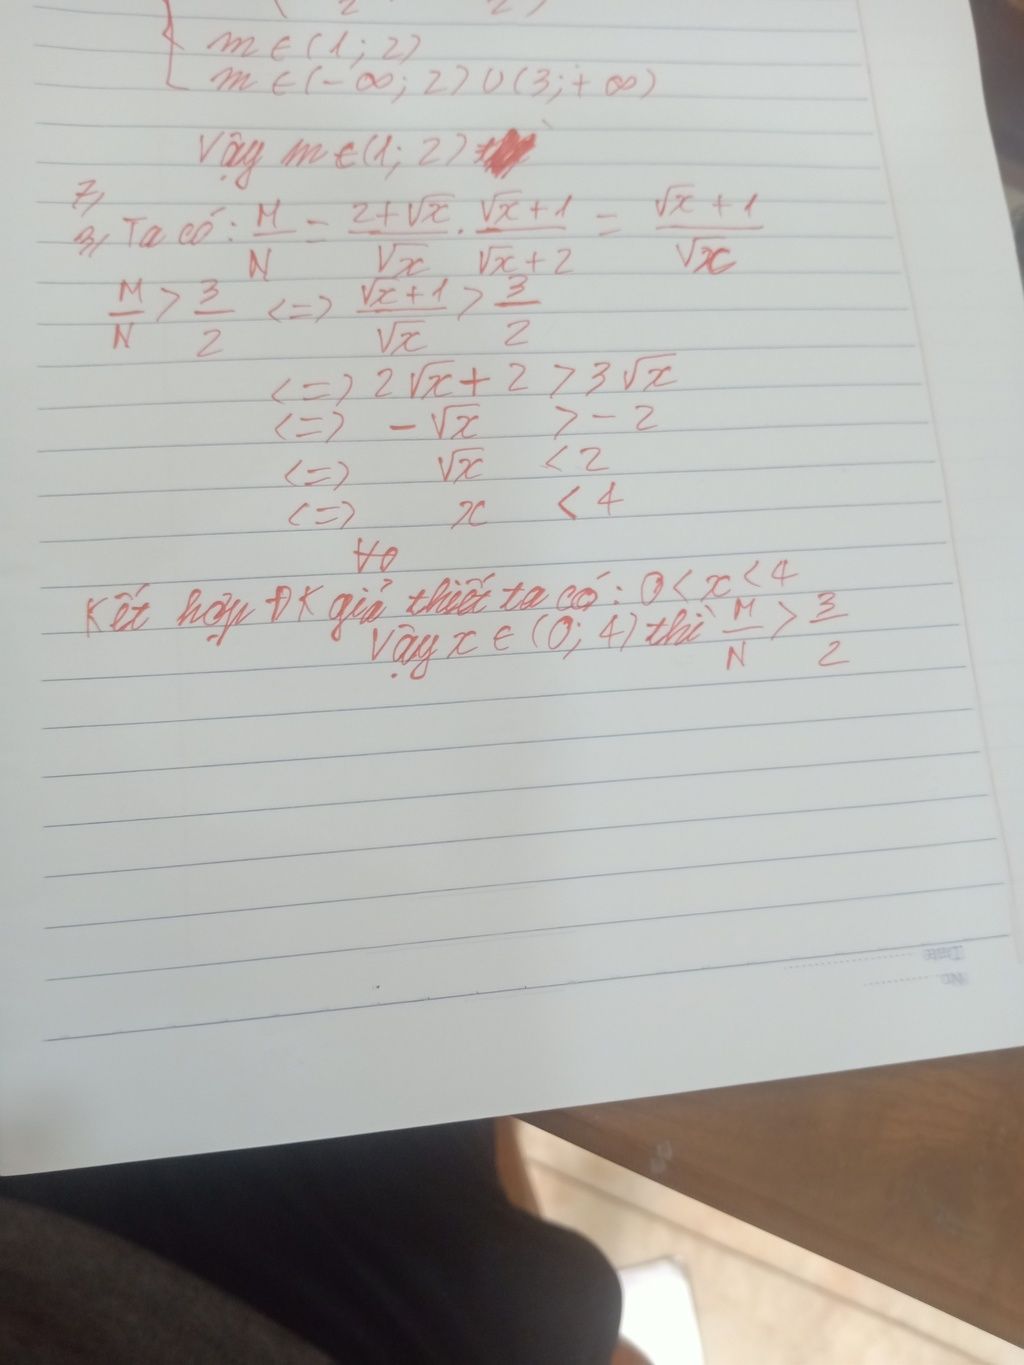 2 2)
m ∈ (1; 2)
m ∈ (-∞; 2) ∪ (3; +∞)
Vậy m ∈ (1; 2)
7,
3, Ta có: M/N = (2+√x)/√x . (√x+1)/(√x+2) = (√x+1)/√x
M/N > 3/2 <=> (√x+1)/√x > 3/2
<=> 2√x + 2 > 3√x
<=> -√x > -2
<=> √x < 2
<=> x < 4
Kết hợp ĐK giả thiết ta có: 0 < x < 4
Vậy x ∈ (0; 4) thì M/N > 3/2
Date
No.